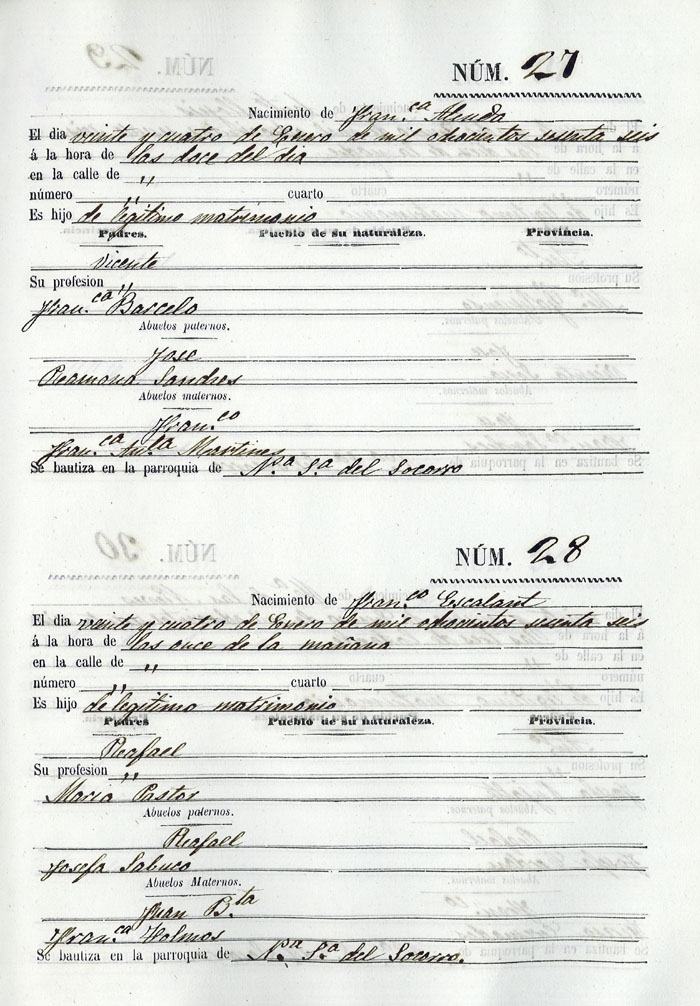 NÚM. 27
Nacimiento de Fran.ca Alenda
El dia veinte y cuatro de Enero de mil ochocientos sesenta seis
á la hora de las doce del dia
en la calle de "
número " cuarto
Es hijo de legitimo matrimonio
Padres. Pueblo de su naturaleza. Provincia.
Vicente
Su profesion "
Fran.ca Barcelo
Abuelos paternos.
Jose
Ramona Sandres
Abuelos maternos.
Fran.co
Fran.ca Ant.a Martines
Se bautiza en la parroquia de N.a S.a del Socorro
NÚM. 28
Nacimiento de Fran.co Escalant
El dia veinte y cuatro de Enero de mil ochocientos sesenta seis
á la hora de las once de la mañana
en la calle de "
número " cuarto
Es hijo de legitimo matrimonio
Padres Pueblo de su naturaleza. Provincia.
Rafael
Su profesion "
Maria Pastor
Abuelos paternos.
Rafael
Josefa Sabuco
Abuelos Maternos.
Juan B.ta
Fran.ca Holmos
Se bautiza en la parroquia de N.a S.a del Socorro.